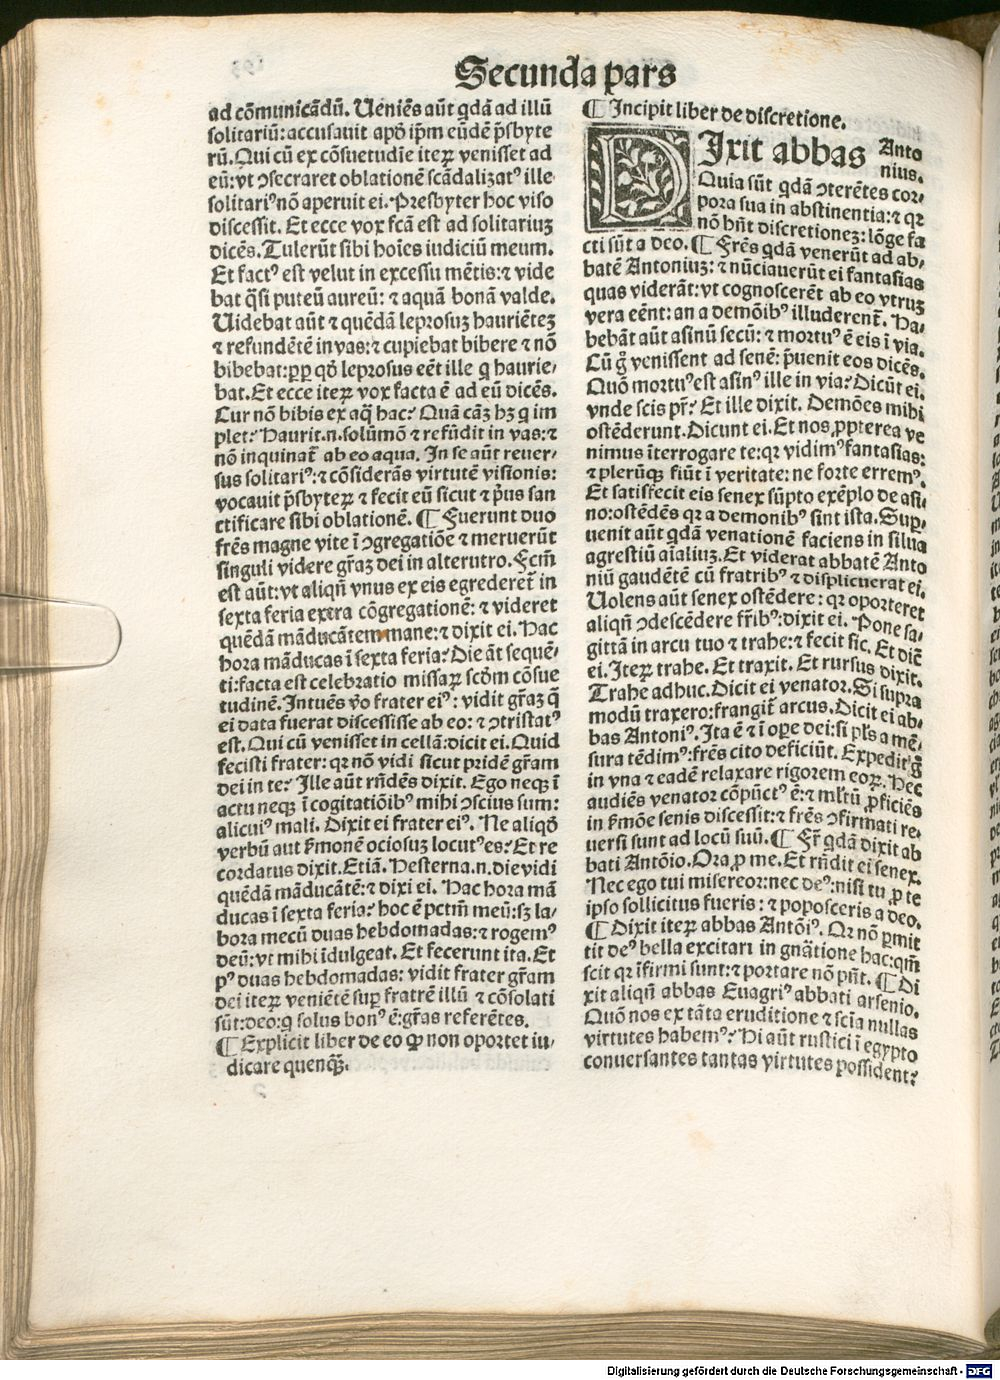 Secunda pars
ad cōmunicādū. Ueniēs aūt qdā ad illū
solitariū: accusauit apđ ip̄m eūdē p̄sbyte
rū. Qui cū ex cōsuetudīe iteꝝ venisset ad
eū: vt ꝯsecraret oblationē scādalizatꝰ ille
solitariꝰ nō aperuit ei. Presbyter hoc viso
discessit. Et ecce vox fcā est ad solitariuꝫ
dicēs. Tulerūt sibi hoīes iudiciū meum.
Et factꝰ est velut in excessu mētis: ⁊ vide
bat q̄si puteū aureū: ⁊ aquā bonā valde.
Uidebat aūt ⁊ quēdā leprosuꝫ hauriēteꝫ
⁊ refundētē in vas: ⁊ cupiebat bibere ⁊ nō
bibebat: ꝓpꝓ qđ leprosus eēt ille q haurie⸗
bat. Et ecce iteꝝ vox facta ē ad eū dicēs.
Cur nō bibis ex aq̄ hac? Quā cāꝫ hꝫ q im
plet? Haurit .n. solūmō ⁊ refūdit in vas: ⁊
nō inquinat᷑ ab eo aqua. In se aūt reuer⸗
sus solitariꝰ: ⁊ cōsiderās virtutē visionis:
vocauit p̄sbyteꝝ ⁊ fecit eū sicut ⁊ p̓us san
ctificare sibi oblationē. ¶ Fuerunt duo
frēs magne vite ī ꝯgregatiōe ⁊ meruerūt
singuli videre gr̄aꝫ dei in alterutro. Fcm̄
est aūt: vt aliqn̄ vnus ex eis egrederet᷑ in
sexta feria extra cōgregationē: ⁊ videret
quēdā māducātem mane: ⁊ dixit ei. Hac
hora māducas ī sexta feria? Die āt sequē⸗
ti: facta est celebratio missaꝝ scđm cōsue
tudinē. Intuēs v̓o frater eiꝰ: vidit gr̄aꝫ q̄
ei data fuerat discessisse ab eo: ⁊ ꝯtristatꝰ
est. Qui cū venisset in cellā: dicit ei. Quid
fecisti frater: qꝛ nō vidi sicut pridē gr̄am
dei in te? Ille aūt rn̄dēs dixit. Ego neqꝫ ī
actu neqꝫ ī cogitatiōibꝰ mihi ꝯscius sum:
alicuiꝰ mali. Dixit ei frater eiꝰ. Ne aliqđ
verbū aut ẜmonē ociosuꝫ locutꝰ es? Et re
cordatus dixit. Etiā. Hesterna .n. die vidi
quēdā māducātē: ⁊ dixi ei. Hac hora mā
ducas ī sexta feria? hoc ē pctm̄ meū: sꝫ la⸗
bora mecū duas hebdomadas: ⁊ rogemꝰ
deū: vt mihi īdulgeat. Et fecerunt ita. Et
pꝰ duas hebdomadas: vidit frater gr̄am
dei iteꝝ veniētē suꝑ fratrē illū ⁊ cōsolati
sūt: deo: q solus bonꝰ ē: gr̄as referētes.
¶ Explicit liber de eo ꝙ non oportet iu⸗
dicare quenq̄ꝫ.
¶ Incipit liber de discretione.
DIxit abbas Anto
nius.
Quia sūt qdā ꝯterētes cor⸗
pora sua in abstinentia: ⁊ qꝛ
nō hn̄t discretioneꝫ: lōge fa
cti sūt a deo. ¶ Frēs qdā venerūt ad ab⸗
batē Antoniuꝫ: ⁊ nūciauerūt ei fantasias
quas viderāt: vt cognoscerēt ab eo vtruꝫ
vera eēnt: an a demōibꝰ illuderent᷑. Ha⸗
bebāt aūt asinū secū: ⁊ mortuꝰ ē eis ī via.
Cū gͦ venissent ad senē: p̄uenit eos dicēs.
Quō mortuꝰ est asinꝰ ille in via? Dicūt ei.
vnde scis pr̄? Et ille dixit. Demōes mihi
ostēderunt. Dicunt ei. Et nos ꝓpterea ve
nimus īterrogare te: qꝛ vidimꝰ fantasias:
⁊ plerūqꝫ fiūt ī veritate: ne forte erremꝰ.
Et satisfecit eis senex sūpto exēplo de asi⸗
no: ostēdēs qꝛ a demonibꝰ sint ista. Suꝑ⸗
uenit aūt qdā venationē faciens in silua
agrestiū aīaliuꝫ. Et viderat abbatē Anto
niū gaudētē cū fratribꝰ ⁊ displicuerat ei.
Uolens aūt senex ostēdere: qꝛ oporteret
aliqn̄ ꝯdescēdere fr̄ibꝰ: dixit ei. Pone sa⸗
gittā in arcu tuo ⁊ trahe: ⁊ fecit sic. Et dic̄
ei. Iteꝝ trahe. Et traxit. Et rursus dixit.
Trahe adhuc. Dicit ei venator. Si supra
modū traxero: frangit᷑ arcus. Dicit ei ab⸗
bas Antoniꝰ. Ita ē ⁊ ī oꝑe dei: si pl̓s a mē⸗
sura tēdimꝰ: frēs cito deficiūt. Expedit gͦ
in vna ⁊ eadē relaxare rigorem eoꝝ. Hec
audiēs venator cōpūctꝰ ē: ⁊ ml̓tū ꝓficiēs
in ẜmōe senis discessit: ⁊ frēs ꝯfirmati re⸗
uersi sunt ad locū suū. ¶ Fr̄ qdā dixit ab
bati Antōio. Ora ꝓ me. Et rn̄dit ei senex.
Nec ego tui misereor: nec deꝰ: nisi tu ꝓ te
ipso sollicitus fueris: ⁊ poposceris a deo.
¶ Dixit iteꝝ abbas Antōiꝰ. Qꝛ nō ꝑmit
tit deꝰ bella excitari in gn̄atione hac: qm̄
scit qꝛ īfirmi sunt: ⁊ portare nō pn̄t. ¶ Di
xit aliqn̄ abbas Euagriꝰ abbati arsenio.
Quō nos ex tāta eruditione ⁊ scīa nullas
virtutes habemꝰ? Hi aūt rustici ī egypto
conuersantes tantas virtutes possident?
Digitalisierung gefördert durch die Deutsche Forschungsgemeinschaft - DFG